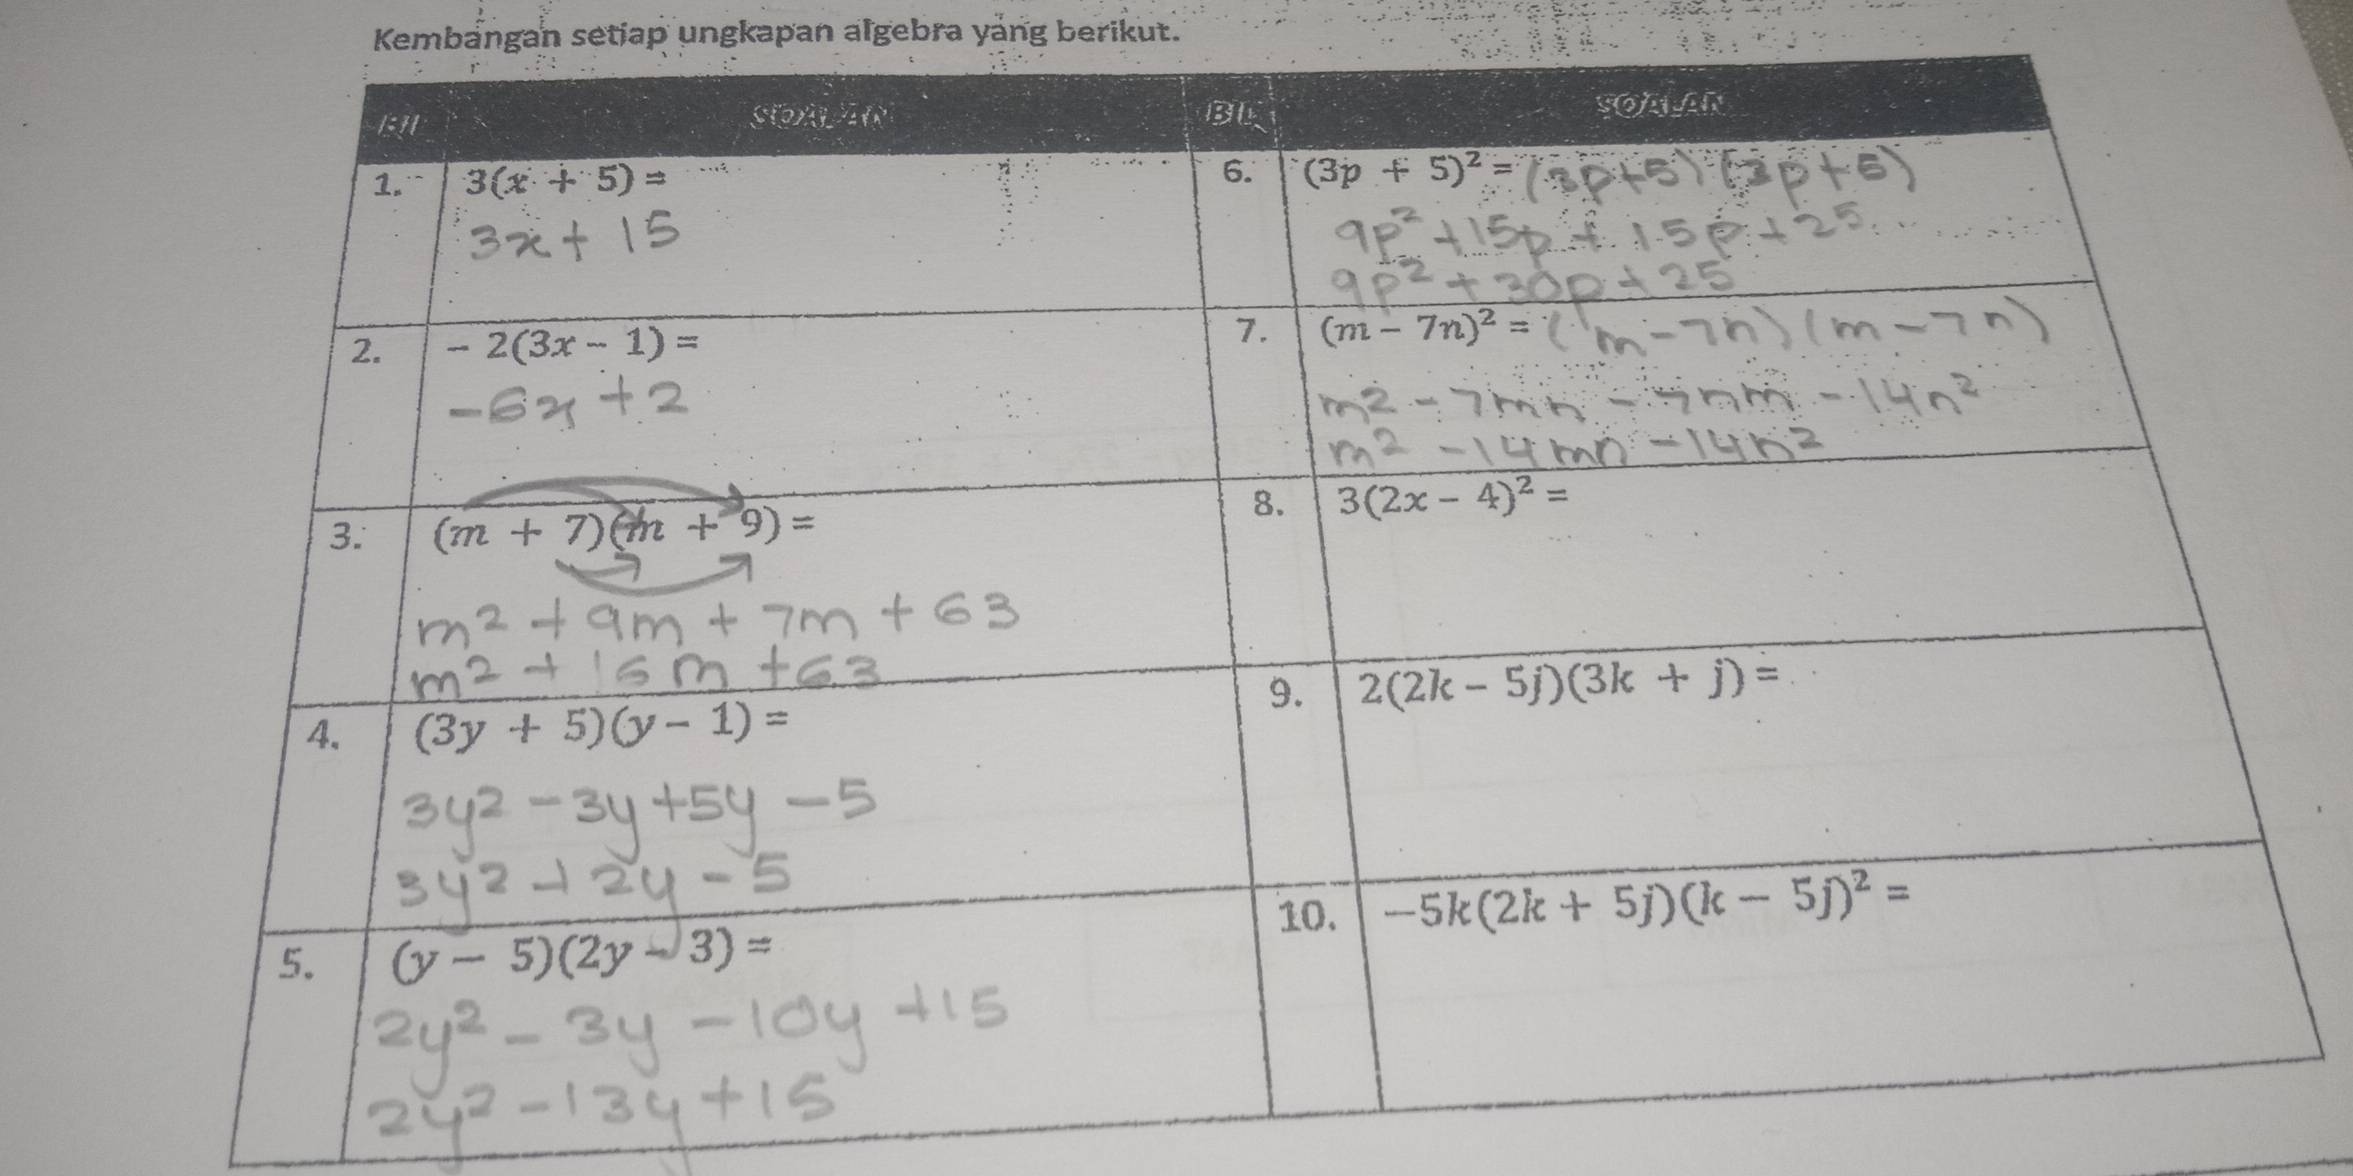 Kembangan setiap ungkapan algebra yang berikut.
BIL SOALAN
1. 3(x + 5) =
3x + 15
2. - 2(3x - 1) =
-6x + 2
3. (m + 7)(m + 9) =
m² + 9m + 7m + 63
m² + 16m + 63
4. (3y + 5)(y - 1) =
3y² - 3y + 5y - 5
3y² + 2y - 5
5. (y - 5)(2y - 3) =
2y² - 3y - 10y + 15
2y² - 13y + 15
BIL SOALAN
6. (3p + 5)² = (3p+5) (3p+5)
9p² + 15p + 15p + 25
9p² + 30p + 25
7. (m - 7n)² = (m - 7n) (m - 7n)
m² - 7mn - 7nm - 14n²
m² - 14mn - 14n²
8. 3(2x - 4)² =
9. 2(2k - 5j)(3k + j) =
10. -5k(2k + 5j)(k - 5j)² =